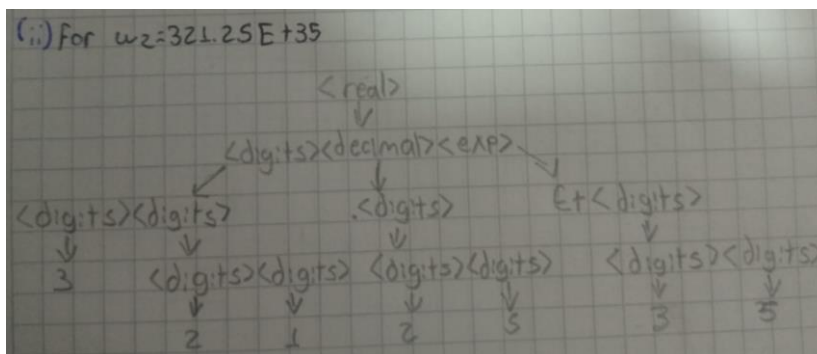 (ii) For w2=321.25E+35
<real>
<digits><decimal><exp>
<digits><digits> .<digits> E+<digits>
3 <digits><digits> <digits><digits> <digits><digits>
2 1 2 5 3 5